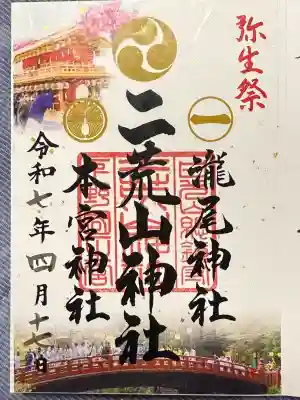 弥生祭
一
瀧尾神社
二荒山神社
本宮神社
令和七年四月十七日